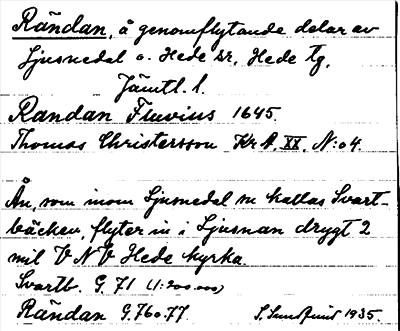 Rändan, å genomflytande delar av
Ljusnedal o. Hede sr, Hede tg,
Jämtl. l.
Randan Fluvius 1645.
Thomas Christersson Kr A. XX. N:o 4.
Ån, som inom Ljusnedal sn kallas Svart-
bäcken, flyter in i Ljusnan drygt 2
mil V N V Hede kyrka.
Svartb. G. 71 (1:200.000)
Rändan G. 760.77. 1935.